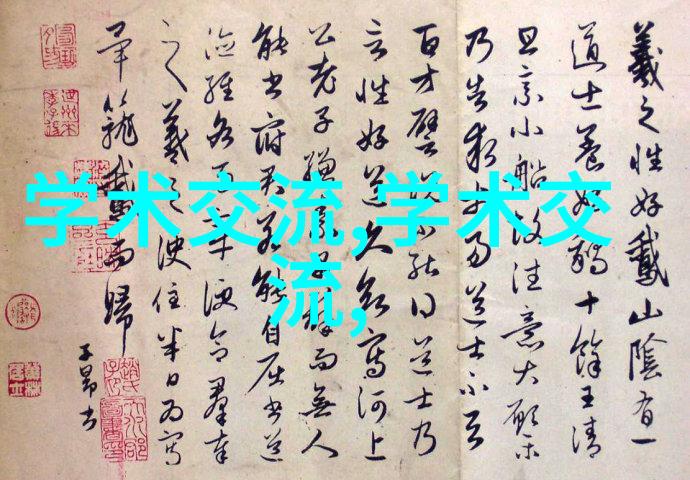 学术交流,学术交
流,
羲之性好鵞山陰有一
道士養好鵝十餘王清
旦乘小船故往意大願樂
乃告求市易道士不與
百方譬說不能得道士乃
言性好道久欲寫河上
公老子縑素早辦而無人
能書府君若能自屈書道
德經各兩章便合羣奉
之羲之便住半日為寫
畢籠鵞而歸
子昂書